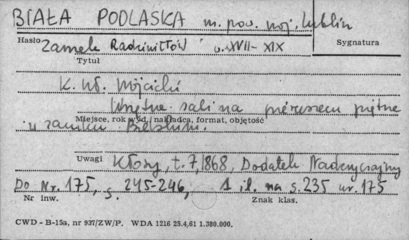 BIAŁA PODLASKA m. pow. woj. Lublin
Hasło Zamek Radziwiłłów w. XVII-XIX Sygnatura
Tytuł
K. Wł. Wójcicki
Wnętrze sali na pierwszem piętrze
Miejsce, rok wyd., nakładca, format, objętość
w zamku Bielskim.
Uwagi Kłosy, t. 7, 1868, Dodatek Nadzwyczajny
Do Nr. 175, s. 245-246, 1 il. na s. 235 nr. 175
Nr inw. Znak klas.
CWD - B-15a, nr 937/ZW/P. WDA 1216 25.4.61 1.380.000.